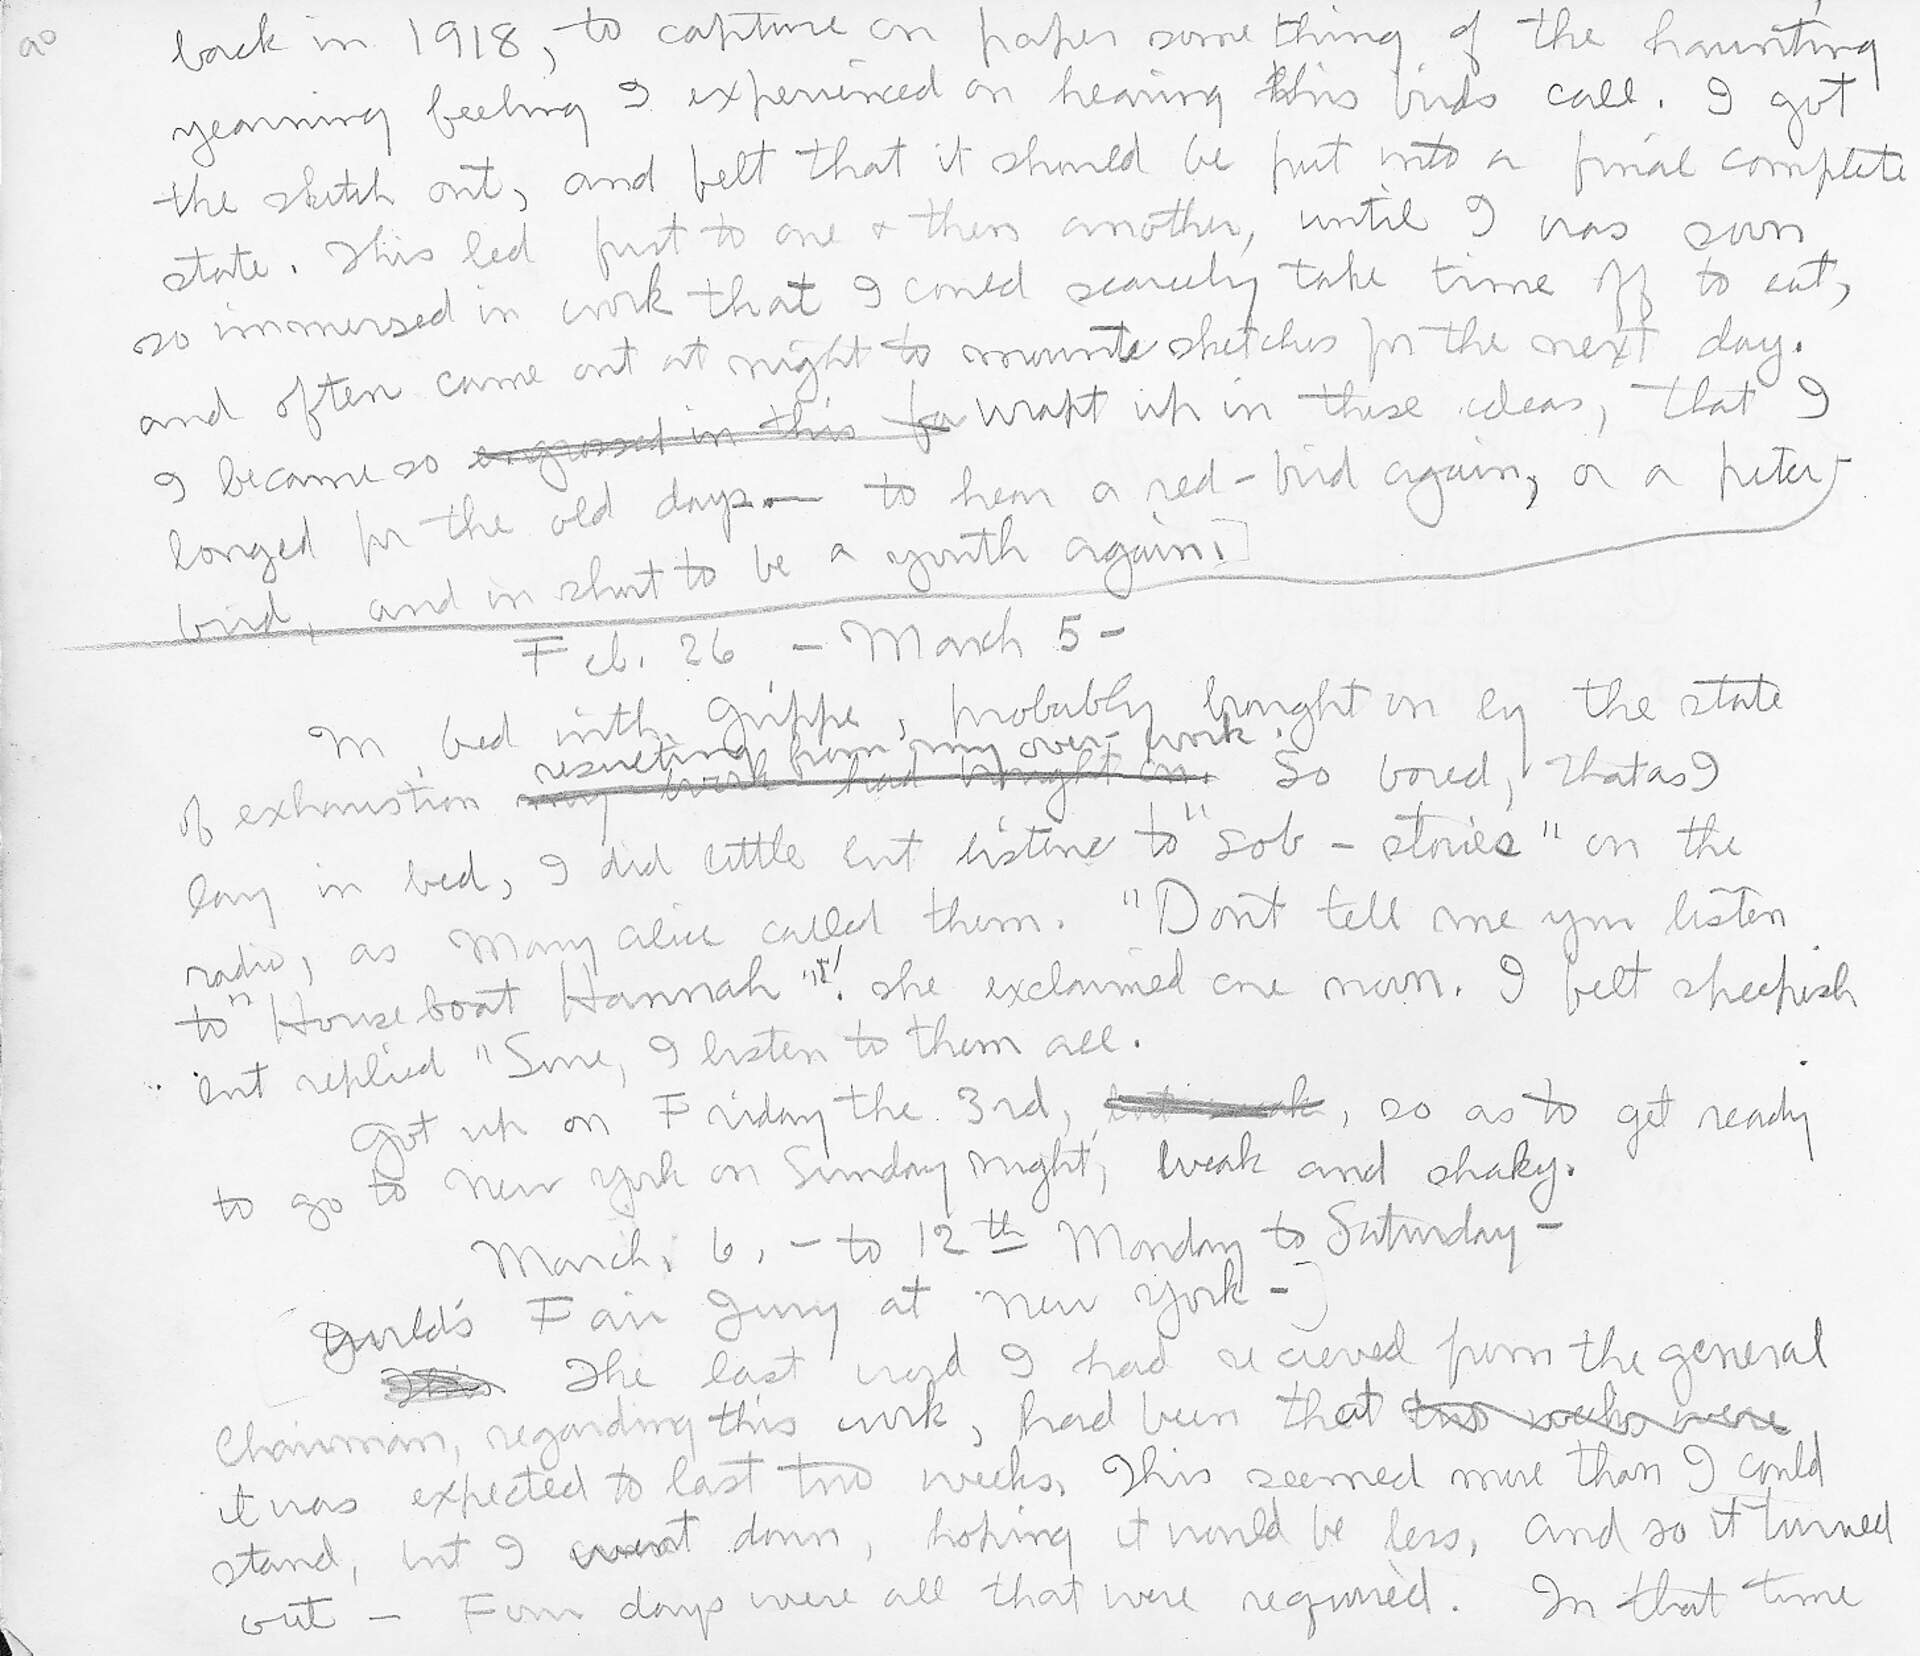 90
back in 1918, to capture on paper something of the haunting
yearning feeling I experienced on hearing this birds call. I got
the sketch out, and felt that it should be put into a final complete
state. This led first to one & then another, until I was soon
so immersed in work that I could scarcely take time off to eat,
and often came out at night to mount sketches for the next day.
I became so engrossed in this fa wrapt up in these ideas, that I
longed for the old days — to hear a red-bird again, or a peter-
bird, and in short to be a youth again.]
Feb. 26 - March 5 -
In bed with Grippe, probably brought on by the state
resulting from my over-work.
of exhaustion my work had brought on. So bored, that as I
lay in bed, I did little but listen to "sob-stories" on the
radio, as Mary Alice called them. "Don't tell me you listen
to "Houseboat Hannah"!" she exclaimed one noon. I felt sheepish
but replied "Sure, I listen to them all.
Got up on Friday the 3rd, but weak, so as to get ready
to go to New York on Sunday night, weak and shaky.
March. 6. - to 12th Monday to Saturday -
World's Fair Jury at New York -]
This The last word I had recieved from the general
Chairman, regarding this work, had been that two weeks were
it was expected to last two weeks. This seemed more than I could
stand, but I went down, hoping it would be less, and so it turned
out - Four days were all that were required. In that time